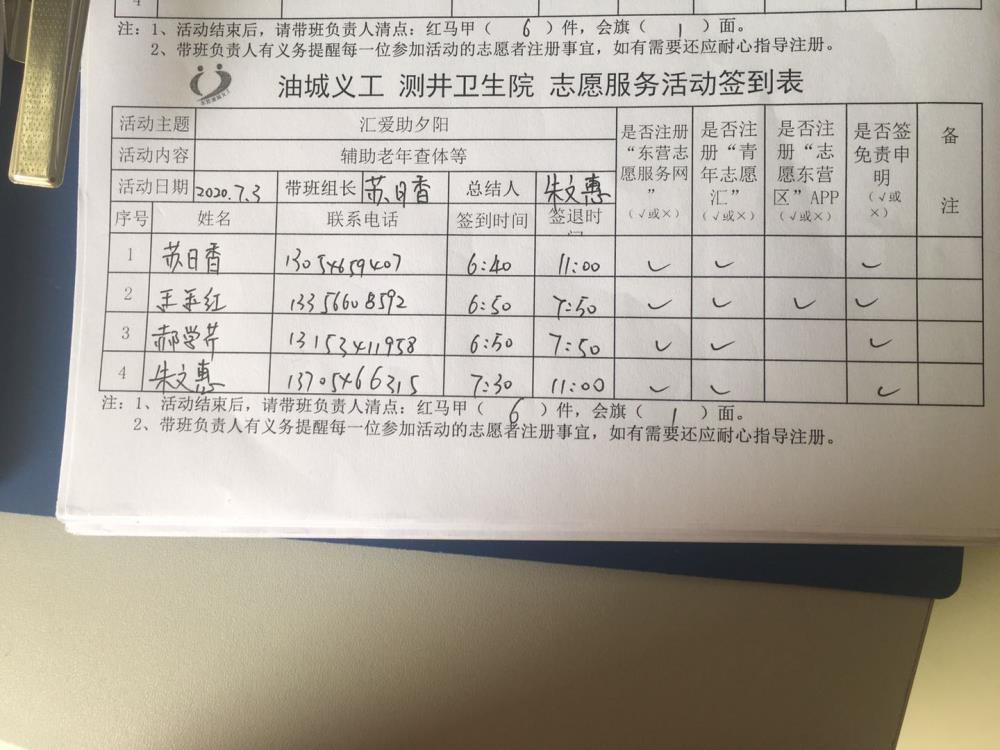 4
注：1、活动结束后，请带班负责人清点：红马甲（ 6 ）件，会旗（ 1 ）面。
2、带班负责人有义务提醒每一位参加活动的志愿者注册事宜，如有需要还应耐心指导注册。
油城义工 测井卫生院 志愿服务活动签到表
活动主题 汇爱助夕阳 是否注册“东营志愿服务网”（√或×） 是否注册“青年志愿汇”（√或×） 是否注册“志愿东营区”APP（√或×） 是否签免责申明（√或×） 备注
活动内容 辅助老年查体等
活动日期 2020.7.3 带班组长 苏日香 总结人 朱文惠
序号 姓名 联系电话 签到时间 签退时间
1 苏日香 13054659407 6:40 11:00 ✓ ✓ ✓
2 王红 13356608592 6:50 7:50 ✓ ✓ ✓ ✓
3 郝学芹 13153411958 6:50 7:50 ✓ ✓ ✓
4 朱文惠 13705466315 7:30 11:00 ✓ ✓ ✓
注：1、活动结束后，请带班负责人清点：红马甲（ 6 ）件，会旗（ 1 ）面。
2、带班负责人有义务提醒每一位参加活动的志愿者注册事宜，如有需要还应耐心指导注册。